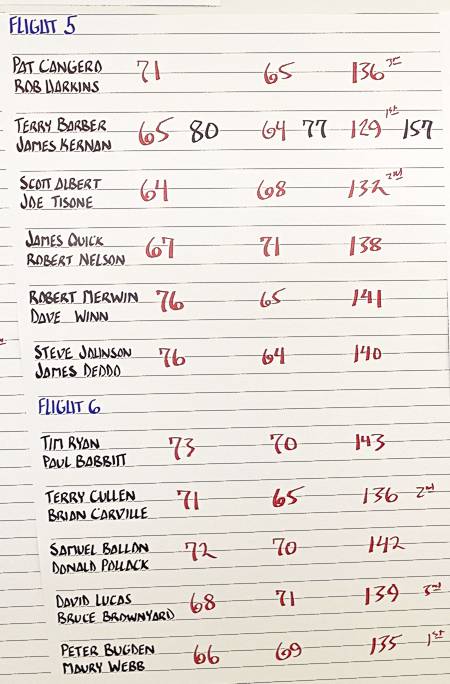 FLIGHT 5
PAT CANGERO 71 65 136 3rd
ROB HARKINS
TERRY BARBER 65 80 64 77 129 1st 157
JAMES KERNAN
SCOTT ALBERT 64 68 132 2nd
JOE TISONE
JAMES QUICK 67 71 138
ROBERT NELSON
ROBERT MERWIN 76 65 141
DAVE WINN
STEVE JOHNSON 76 64 140
JAMES DEDDO
FLIGHT 6
TIM RYAN 73 70 143
PAUL BABBITT
TERRY CULLEN 71 65 136 2nd
BRIAN CARVILLE
SAMUEL BALLAN 72 70 142
DONALD POLLACK
DAVID LUCAS 68 71 139 3rd
BRUCE BROWNYARD
PETER BUGDEN 66 69 135 1st
MAURY WEBB